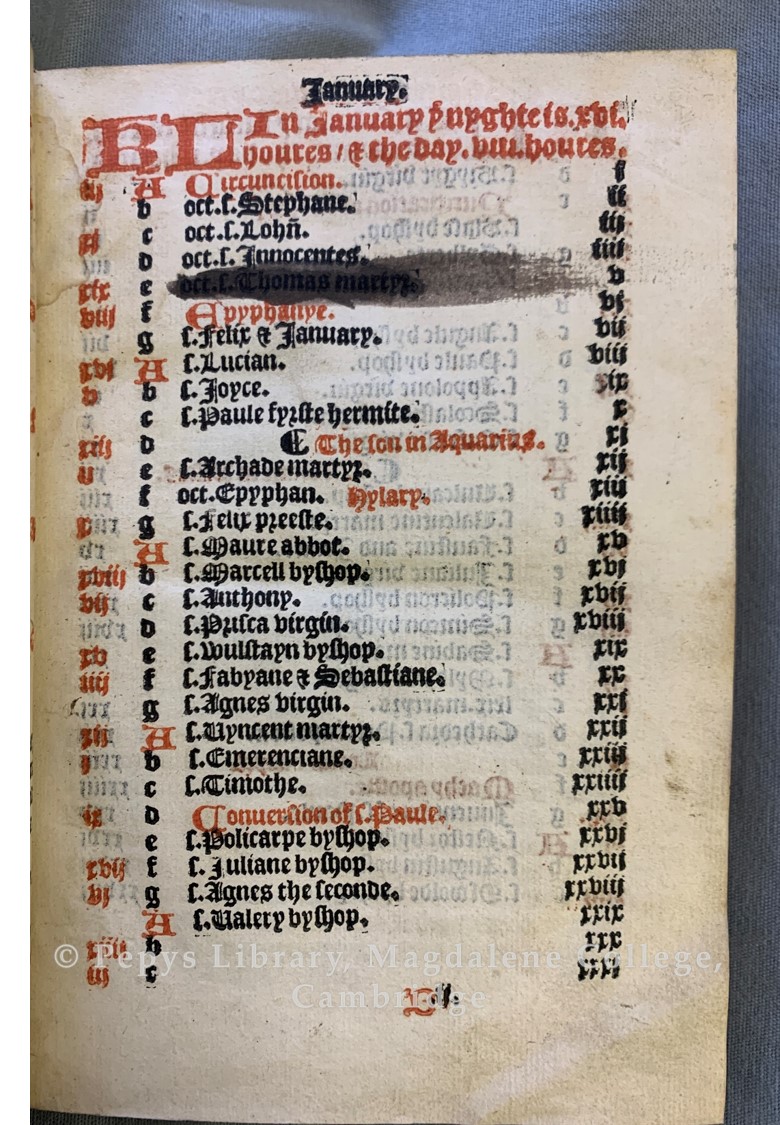 January.
KL In January yͤ nyghte is .xvi.
houres / & the day. viii. houres.
iij A Circunciſion. j
b oct.ſ.Stephane. ii
xj c oct.ſ.Iohn̄. iij
d oct.ſ.Innocentes. iiij
xix e oct.ſ.Thomas martyꝛ. v
viij f Epyphanye. vj
g ſ.Felix & January. vij
xvj A ſ.Lucian. viij
v b ſ.Joyce. ix
c ſ.Paule fyꝛſte hermite. x
xiij d ¶ The ſon in Aquarius. xj
ij e ſ.Archade martyꝛ. xij
f oct.Epyphan. Hylary. xiij
x g ſ.Felix pꝛeeſte. xiiij
A ſ.Maure abbot. xv
xviij b ſ.Marcell byſhop. xvj
vij c ſ.Anthony. xvij
d ſ.Pꝛiſca virgin. xviij
xv e ſ.Wulſtayn byſhop. xix
iiij f ſ.Fabyane & Sebaſtiane. xx
g ſ.Agnes virgin. xxj
xij A ſ.Uyncent martyꝛ. xxij
j b ſ.Emerenciane. xxiij
c ſ.Timothe. xxiiij
ix d Conuerſion of ſ.Paule. xxv
e ſ.Policarpe byſhop. xxvj
xvij f ſ.Juliane byſhop. xxvij
vj g ſ.Agnes the ſeconde. xxviij
A ſ.Ualery byſhop. xxix
xiiij b xxx
iij c xxxj
© Pepys Library, Magdalene College,
Cambridge